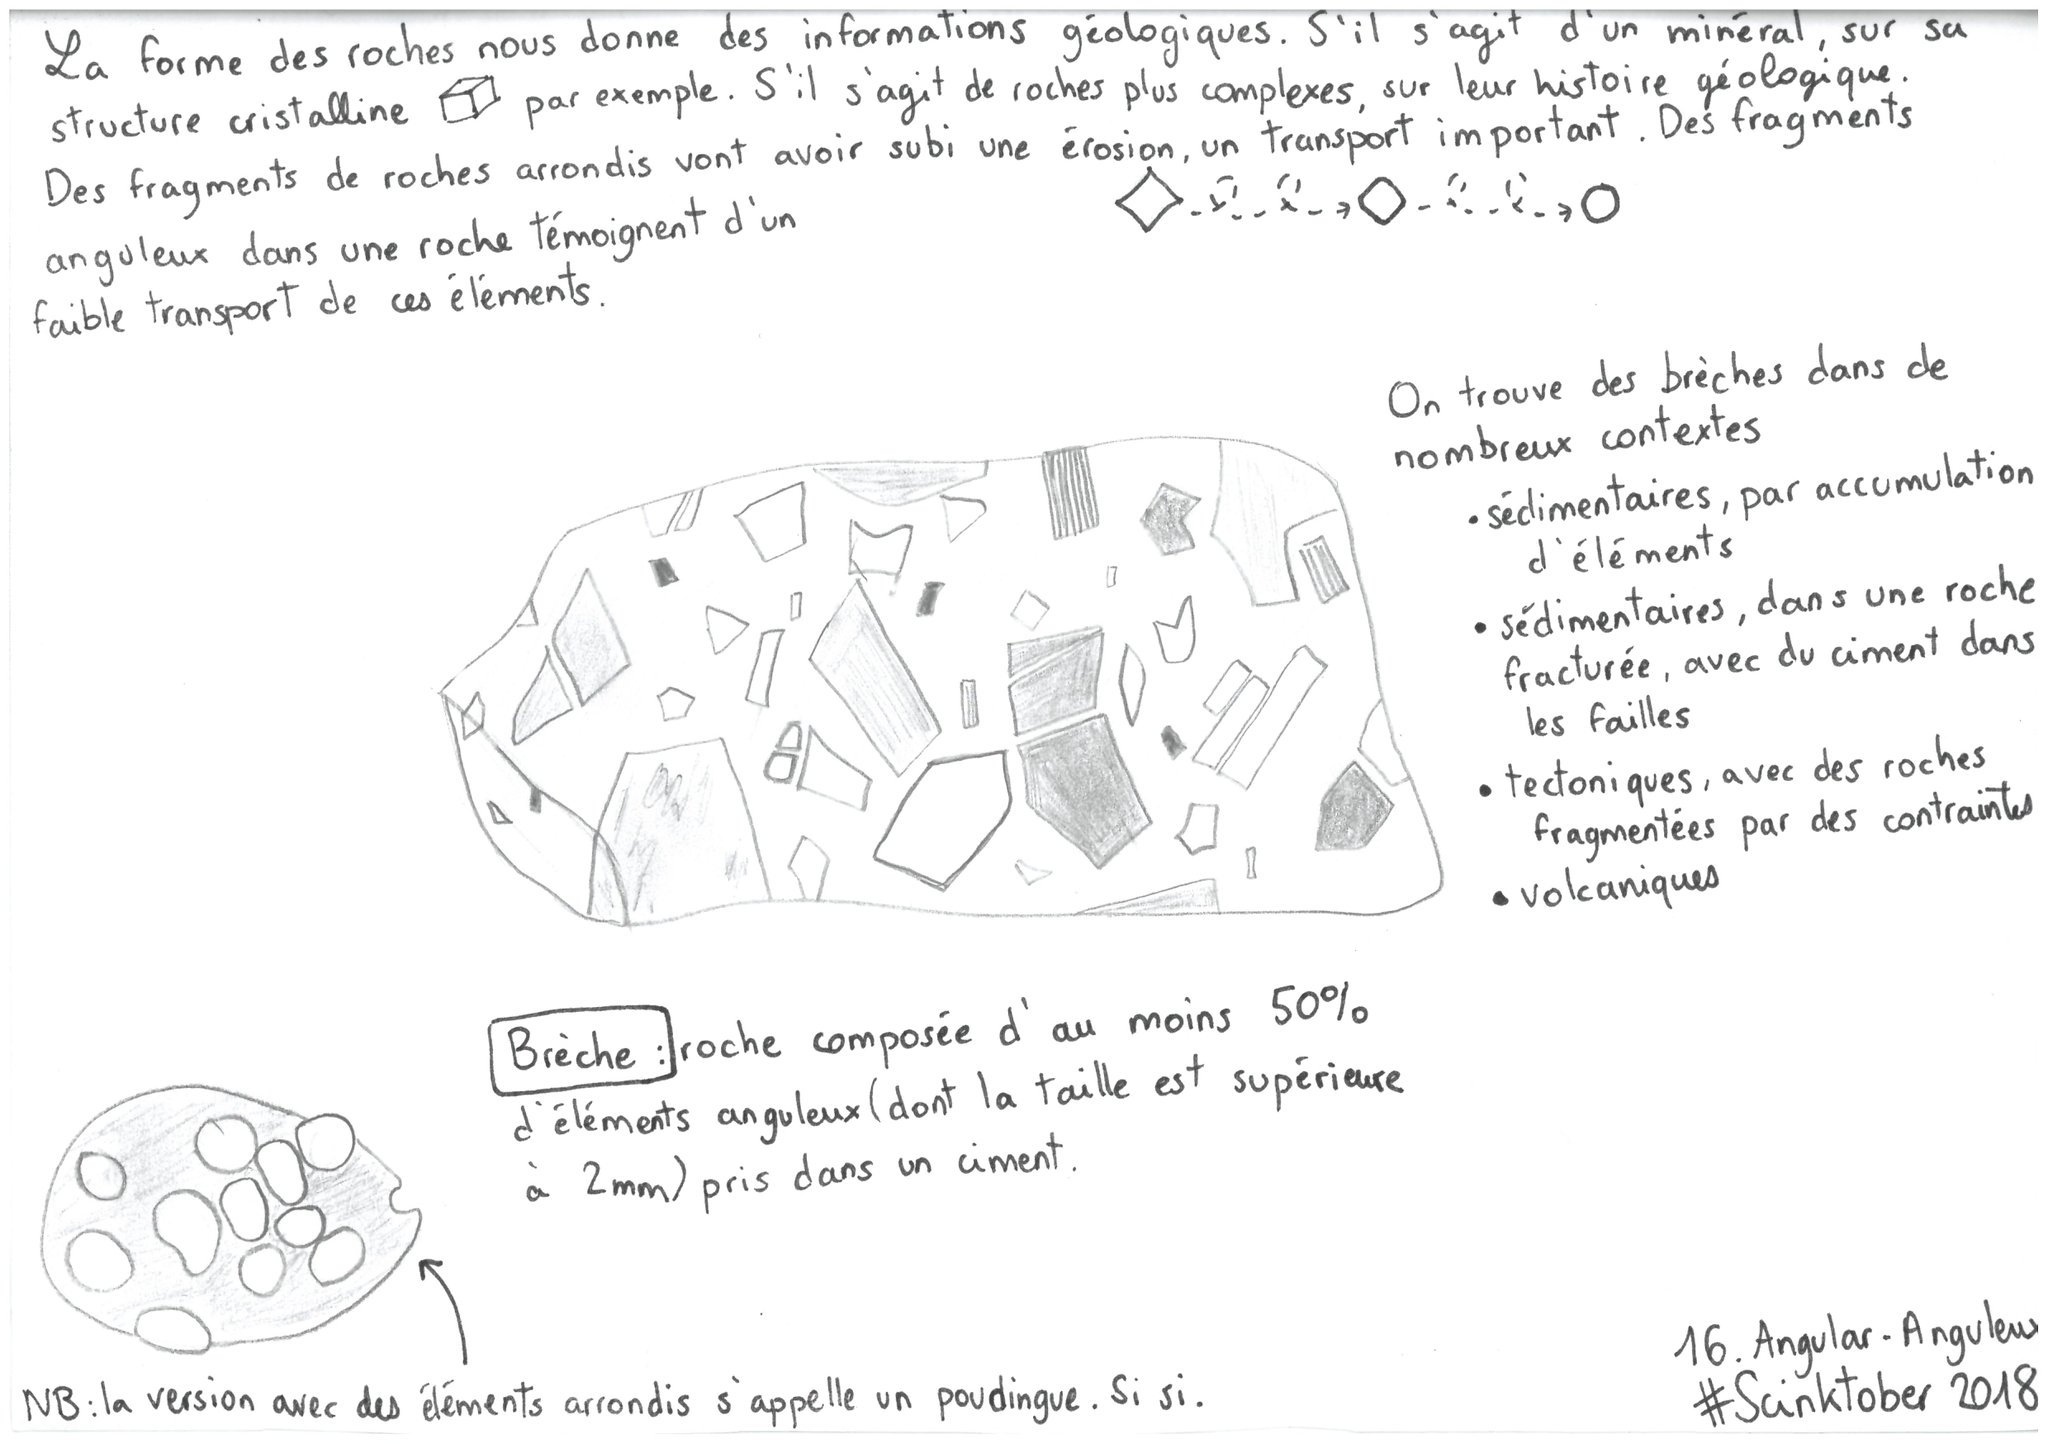 La forme des roches nous donne des informations géologiques. S'il s'agit d'un minéral, sur sa
structure cristalline par exemple. S'il s'agit de roches plus complexes, sur leur histoire géologique.
Des fragments de roches arrondis vont avoir subi une érosion, un transport important. Des fragments
anguleux dans une roche témoignent d'un
faible transport de ces éléments.
On trouve des brèches dans de
nombreux contextes
• sédimentaires, par accumulation
d'éléments
• sédimentaires, dans une roche
fracturée, avec du ciment dans
les failles
• tectoniques, avec des roches
fragmentées par des contraintes
• volcaniques
Brèche : roche composée d'au moins 50%
d'éléments anguleux (dont la taille est supérieure
à 2mm) pris dans un ciment.
NB : la version avec des éléments arrondis s'appelle un poudingue. Si si.
16. Angular - Anguleux
#Scinktober 2018